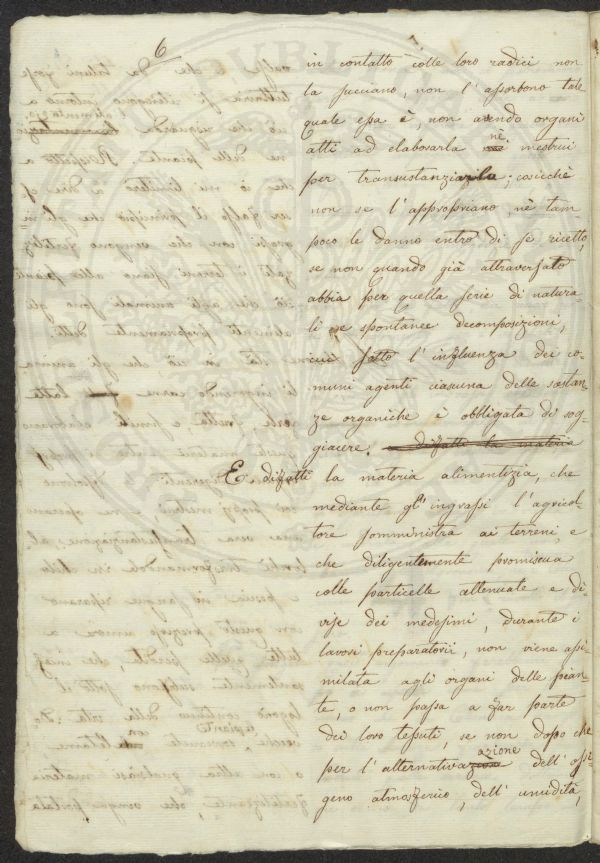 6
in contatto colle loro radici non
la succiano, non l'assorbono tale
quale essa è, non avendo organi
atti ad elaborarla nè mestrui
per transustanziarla; cosicchè
non se l'appropriano, nè tam-
poco le danno entro di se ricetto,
se non quando già attraversato
abbia per quella serie di natura-
li e spontanee decomposizioni,
cui sotto l'influenza dei co-
muni agenti ciascuna delle sostan-
ze organiche è obbligata di sog-
giacere. diffatti la materia
E diffatti la materia alimentizia, che
mediante gl'ingrassi l'agricol-
tore somministra ai terreni e
che diligentemente promiscua
colle particelle attenuate e di-
vise dei medesimi, durante i
lavori preparatorii, non viene assi-
milata agli organi delle pian-
te, o non passa a far parte
dei loro tessuti, se non dopo che
azione
per l'alternativa dell'ossi-
geno atmosferico, dell'umidità,